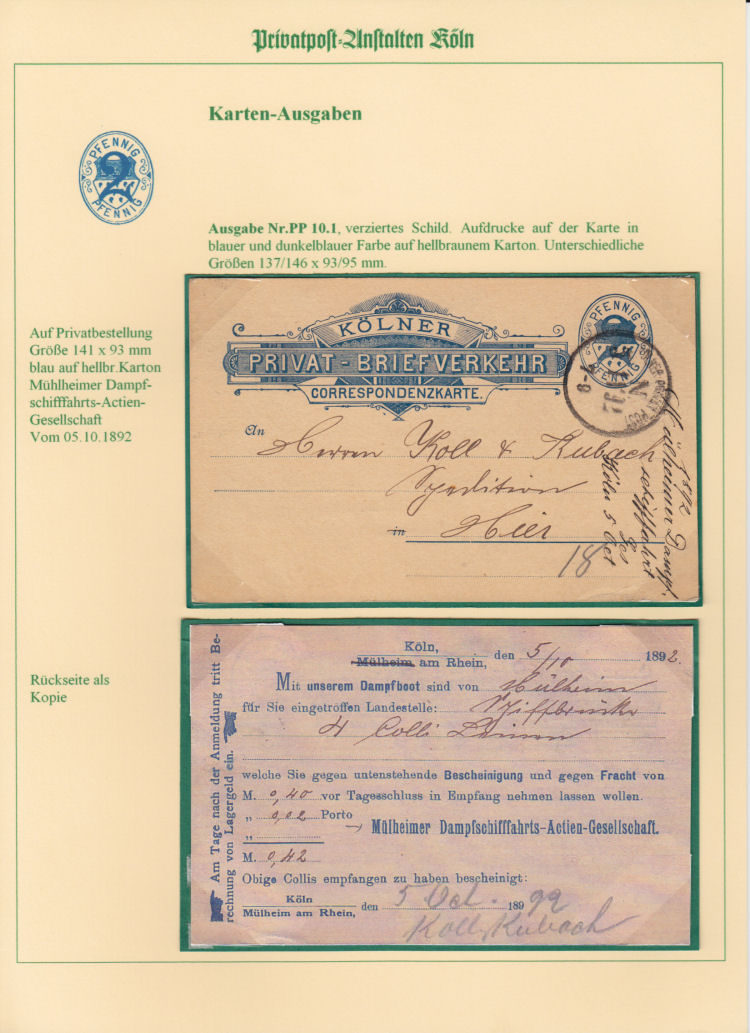 Privatpost-Anstalten Köln
Karten-Ausgaben
PFENNIG
2
PFENNIG
Ausgabe Nr.PP 10.1, verziertes Schild. Aufdrucke auf der Karte in
blauer und dunkelblauer Farbe auf hellbraunem Karton. Unterschiedliche
Größen 137/146 x 93/95 mm.
Auf Privatbestellung
Größe 141 x 93 mm
blau auf hellbr.Karton
Mühlheimer Dampf-
schifffahrts-Actien-
Gesellschaft
Vom 05.10.1892
KÖLNER
PRIVAT-BRIEFVERKEHR
CORRESPONDENZKARTE.
PFENNIG
2
PFENNIG
An
Herren Koll & Kubach
Spedition
in Hier
18
Mülheimer Dampf.
schifffahrt
Ges
Köln 5 Oct
Rückseite als
Kopie
Am Tage nach der Anmeldung tritt Be-
rechnung von Lagergeld ein.
Köln,
Mülheim am Rhein, den 5/10 1892.
Mit unserem Dampfboot sind von Mülheim
für Sie eingetroffen Landestelle: Schiffbrücke
4 Colli
welche Sie gegen untenstehende Bescheinigung und gegen Fracht von
M. 0,40 vor Tagesschluss in Empfang nehmen lassen wollen.
„ 0,02 Porto
„
Mülheimer Dampfschifffahrts-Actien-Gesellschaft.
M. 0,42
Obige Collis empfangen zu haben bescheinigt:
Köln
Mülheim am Rhein, den 5 Oct. 1892
Koll & Kubach